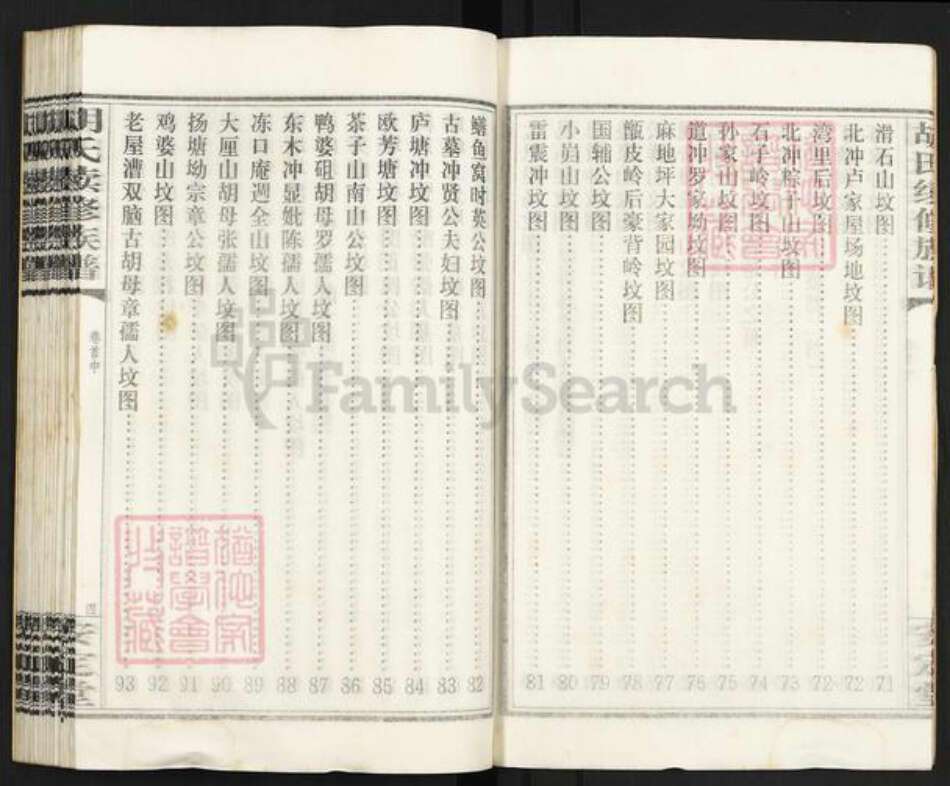 滑石山坟图 71
北冲卢家屋场地坟图 72
湾里后坟图 72
北冲粽子山坟图 73
石子岭坟图 74
孙家山坟图 75
道冲罗家坳坟图 76
麻地坪大家园坟图 77
甑皮岭后豪背岭坟图 78
国辅公坟图 79
小岿山坟图 80
雷震冲坟图 81
鳝鱼窝时英公坟图 82
古墓冲贤公夫妇坟图 83
庐塘冲坟图 84
欧芳塘坟图 85
茶子山南山公坟图 86
鸭婆砠胡母罗儒人坟图 87
东木冲显妣陈儒人坟图 88
冻口庵迥全山坟图 89
大厘山胡母张儒人坟图 90
扬塘坳宗章公坟图 91
鸡婆山坟图 92
老屋漕双脑古胡母章儒人坟图 93
胡氏续修族谱
卷首中
四
FamilySearch